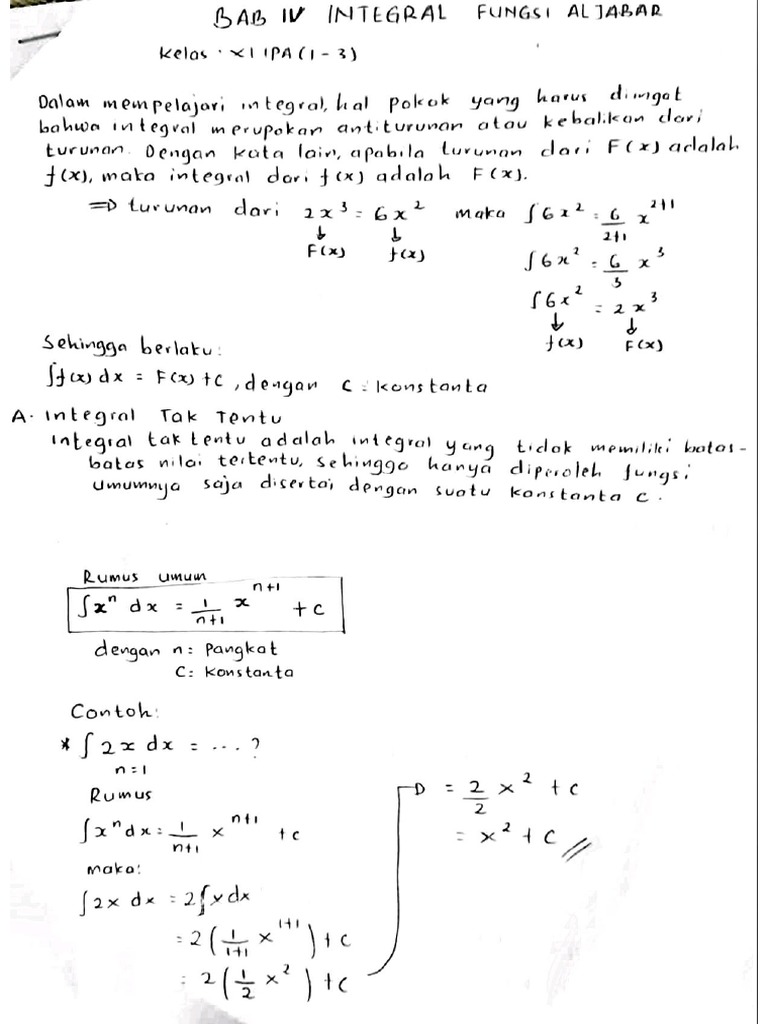 BAB IV INTEGRAL FUNGSI ALJABAR
Kelas : XI IPA (1 - 3)
Dalam mempelajari integral, hal pokok yang harus diingat
bahwa integral merupakan antiturunan atau kebalikan dari
turunan. Dengan kata lain, apabila turunan dari F(x) adalah
f(x), maka integral dari f(x) adalah F(x).
=> turunan dari 2x³ = 6x² maka ∫6x² = 6/(2+1) x²⁺¹
↓ ↓
F(x) f(x)
∫6x² = 6/3 x³
∫6x² = 2x³
↓ ↓
f(x) F(x)
Sehingga berlaku:
∫f(x) dx = F(x) + C, dengan C = konstanta
A. Integral Tak Tentu
Integral tak tentu adalah integral yang tidak memiliki batas-
batas nilai tertentu, sehingga hanya diperoleh fungsi
umumnya saja disertai dengan suatu konstanta C.
Rumus umum
∫xⁿ dx = 1/(n+1) xⁿ⁺¹ + C
dengan n = Pangkat
C = Konstanta
Contoh:
* ∫2x dx = ... ?
n = 1
Rumus
∫xⁿ dx = 1/(n+1) xⁿ⁺¹ + C
maka:
∫2x dx = 2∫x dx
= 2(1/(1+1) x¹⁺¹) + C
= 2(1/2 x²) + C
= 2/2 x² + C
= x² + C //